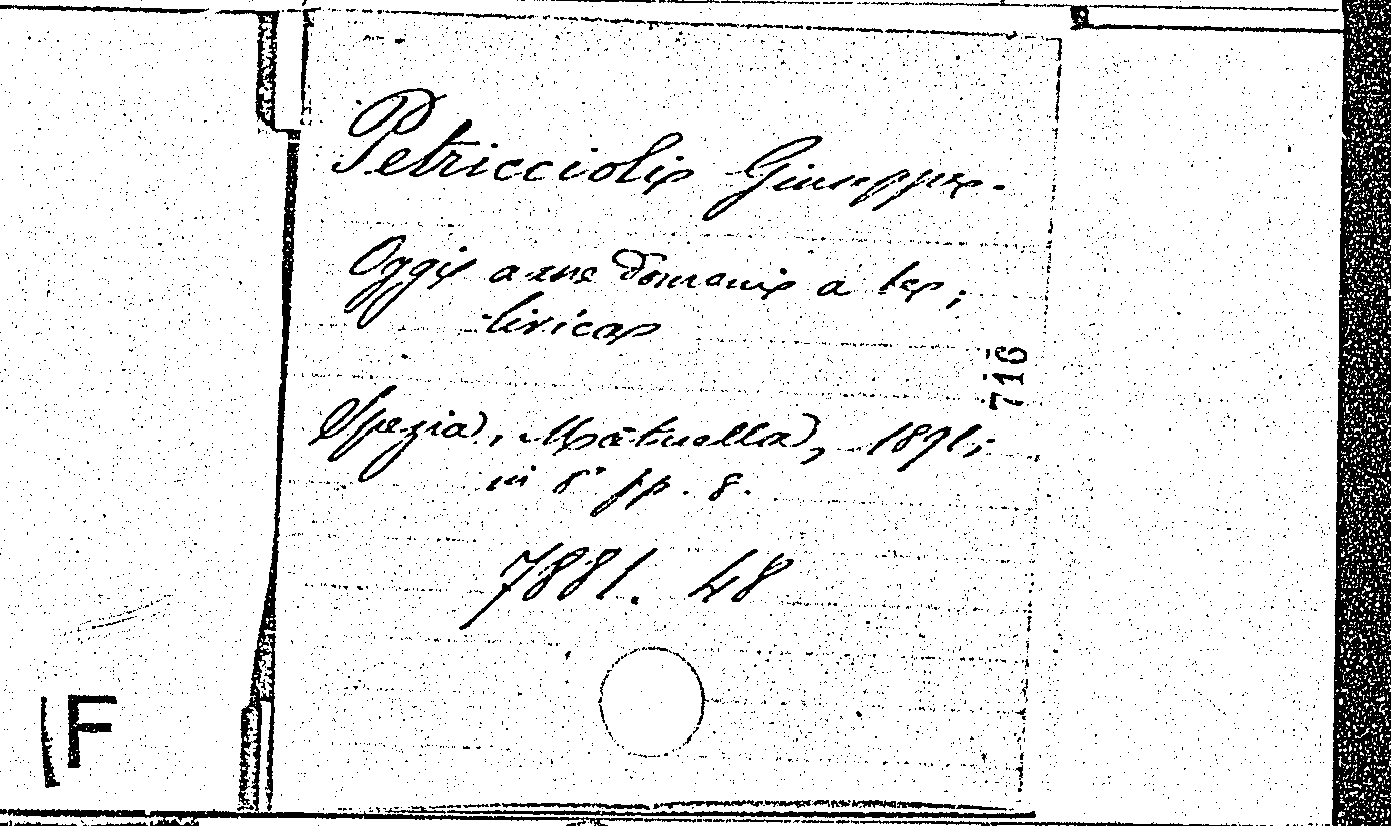 Petriccioli Giuseppe.
Oggi a me domani a te;
lirica
Spezia, Matuella, 1891;
in 8° pp. 8.
7881. 48
716
F